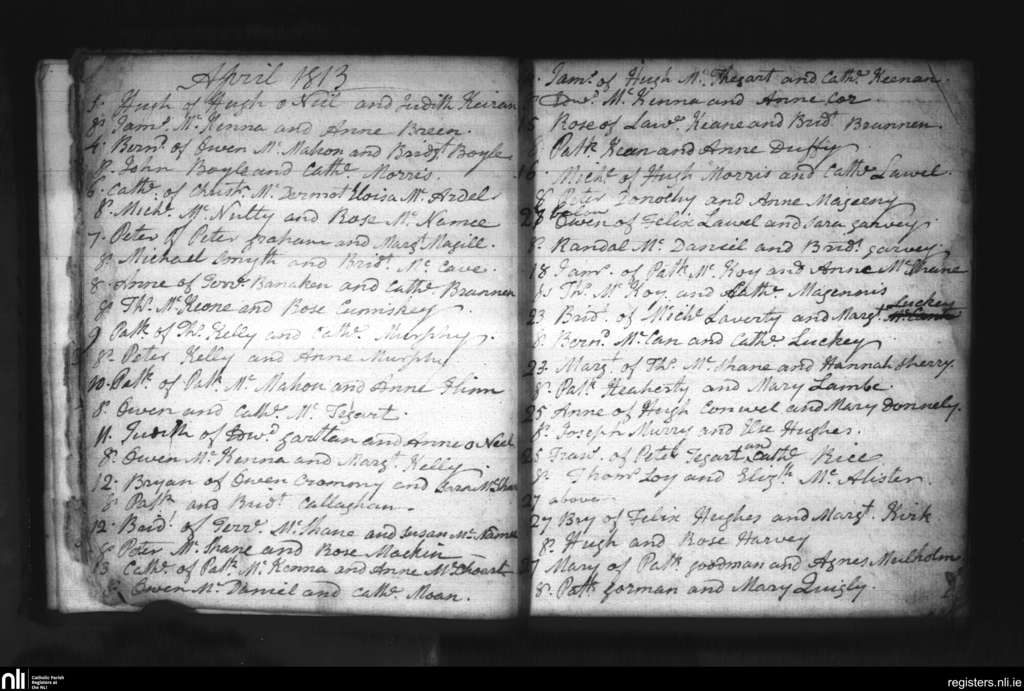 April 1813
5. Hugh of Hugh o Neil and Judith Keiran
8r. Jams. Mc. Kenna and Anne Breen.
4. Bernd. of Owen Mc. Mahon and Bridgt. Boyle
8r. John Boyle and Cathe. Morris.
6. Cathe. of Christr. Mc. Dermot Eloisa Mc. Ardel
8r. Michl. Mc. Nutty and Rose Mc. Namee
7. Peter of Peter graham and Margt. Magill.
8r. Michael Smyth and Bridt. Mc. Cave.
8. Anne of Terre. Banaken and Cathe. Brannen
8r. Ths. Mc. Keone and Rose Cumiskey
9 Patk. of Ths. Kelly and Cathe. Murphy
8r. Peter Kelly and Anne Murphy
10. Patk. of Patk. Mc. Mahon and Anne Flinn
8r. Owen and Cathe. Mc. Tegart.
11. Judith of Edwd. gartlan and Anne o Neil
8r. Owen Mc. Kenna and Margt. Kelly.
12. Bryan of Owen and Sara Mc. Shane
8r Patk. and Bridt. Callaghan.
12. Bridt. of Terre. Mc. Shane and Susan Mc. Namee
8r Peter Mc. Shane and Rose Mackin
13 Cathe. of Patk. Mc. Kenna and Anne
8r. Owen Mc. Daniel and Cathe. Moan.
Jams. of Hugh Mc. Thegart and Cathe. Keenan.
Edwd. Mc. Kenna and Anne Cox
15 Rose of Lawe. Keane and Bridt. Brannen.
Patk. Kean and Anne Duffy
16 Michl. of Hugh Morris and Cathe. Lawel.
8r Peter Donothy and Anne Mageeny
below
27 Owen of Felix Lawel and Sara garvey
8r. Randal Mc. Daniel and Bridt. garvey.
18 Jams. of Patk. Mc. Koy and Anne Mc. Shane
8r Ths. Mc. Koy and Cathe. Magennis
Luckey
23 Bridt. of Michl. Laverty and Margt.
8r. Bernd. Mc. Can and Cathe. Luckey
23. Margt. of Ths. Mc. Shane and Hannah Sherry.
8r. Patk. Heaherty and Mary Lambe.
25 Anne of Hugh Conwel and Mary Donnely.
8r. Joseph Murry and Hughes.
25 Frans. of Peter Tegart and Cathe. Rice
8r. Thoms. Loy and Elizth. Mc. Alister.
27 above
27 Bry of Felix Hughes and Margt. Kirk.
8r. Hugh and Rose Harvey
27 Mary of Patk. goodman and Agnes Meulholm
8r. Patk. gorman and Mary Quigly.
nli
Catholic Parish
Registers at
the NLI
registers.nli.ie